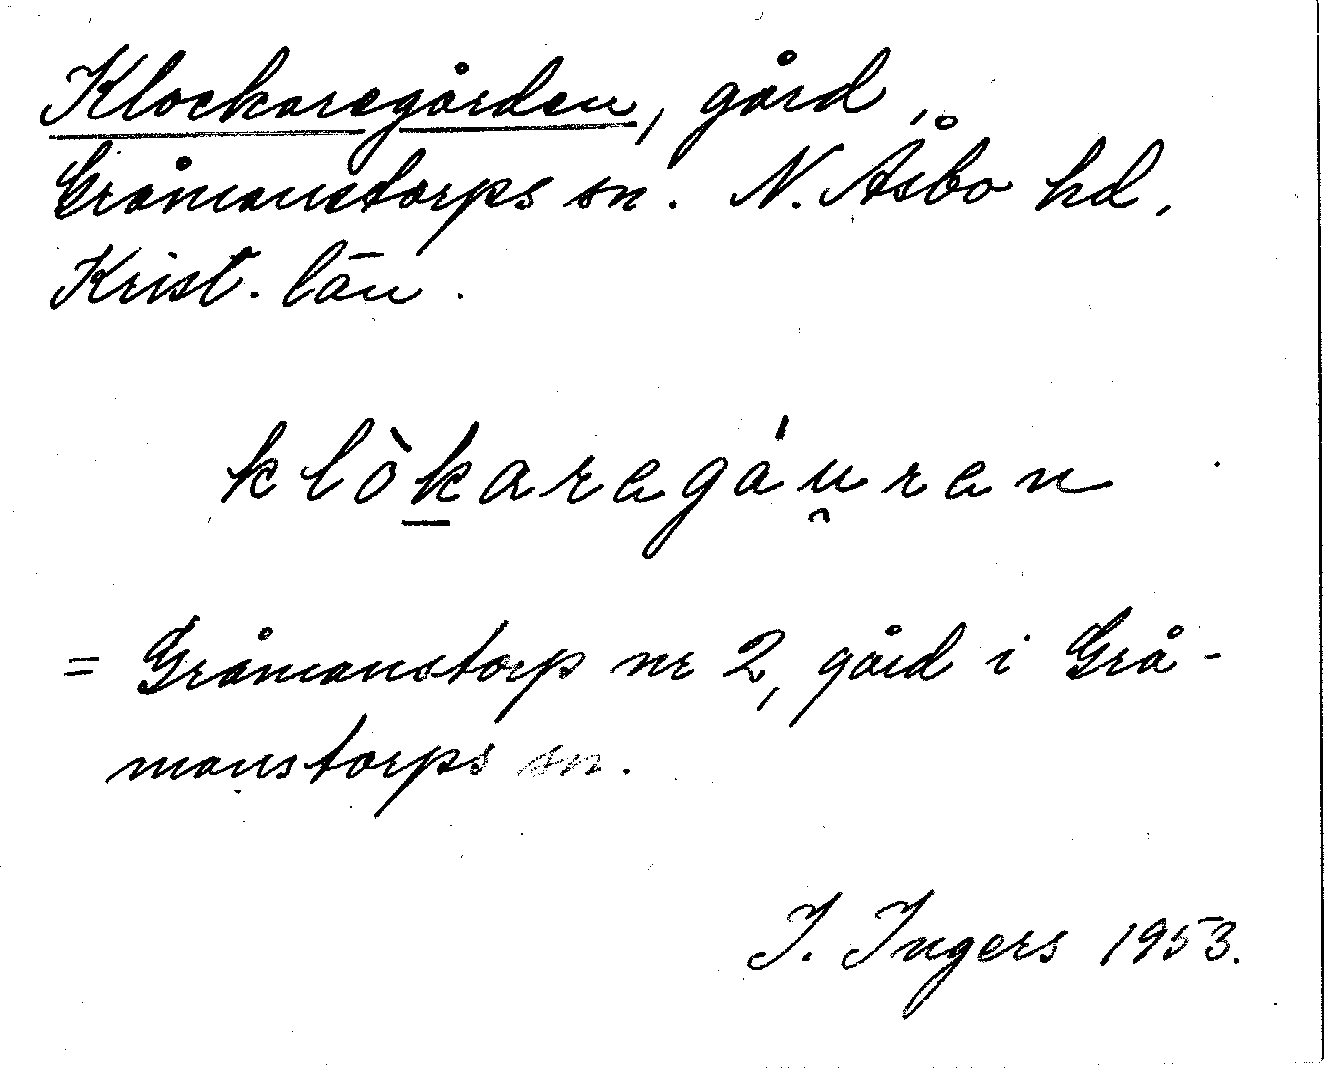 Klockaregården, gård,
Gråmanstorps sn. N. Åsbo hd,
Krist. län.
klòkaregáu̯ren
= Gråmanstorp nr 2, gård i Grå-
manstorps sn.
I. Ingers 1953.